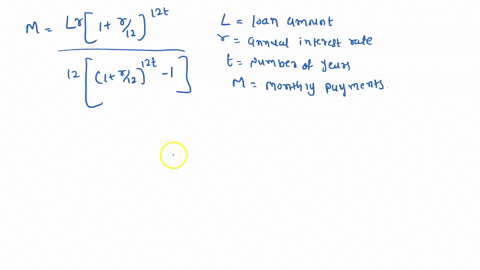 M = Lr[1 + r/12]^12t
12[(1 + r/12)^12t - 1]
L = loan amount
r = annual interest rate
t = number of years
M = monthly payments.